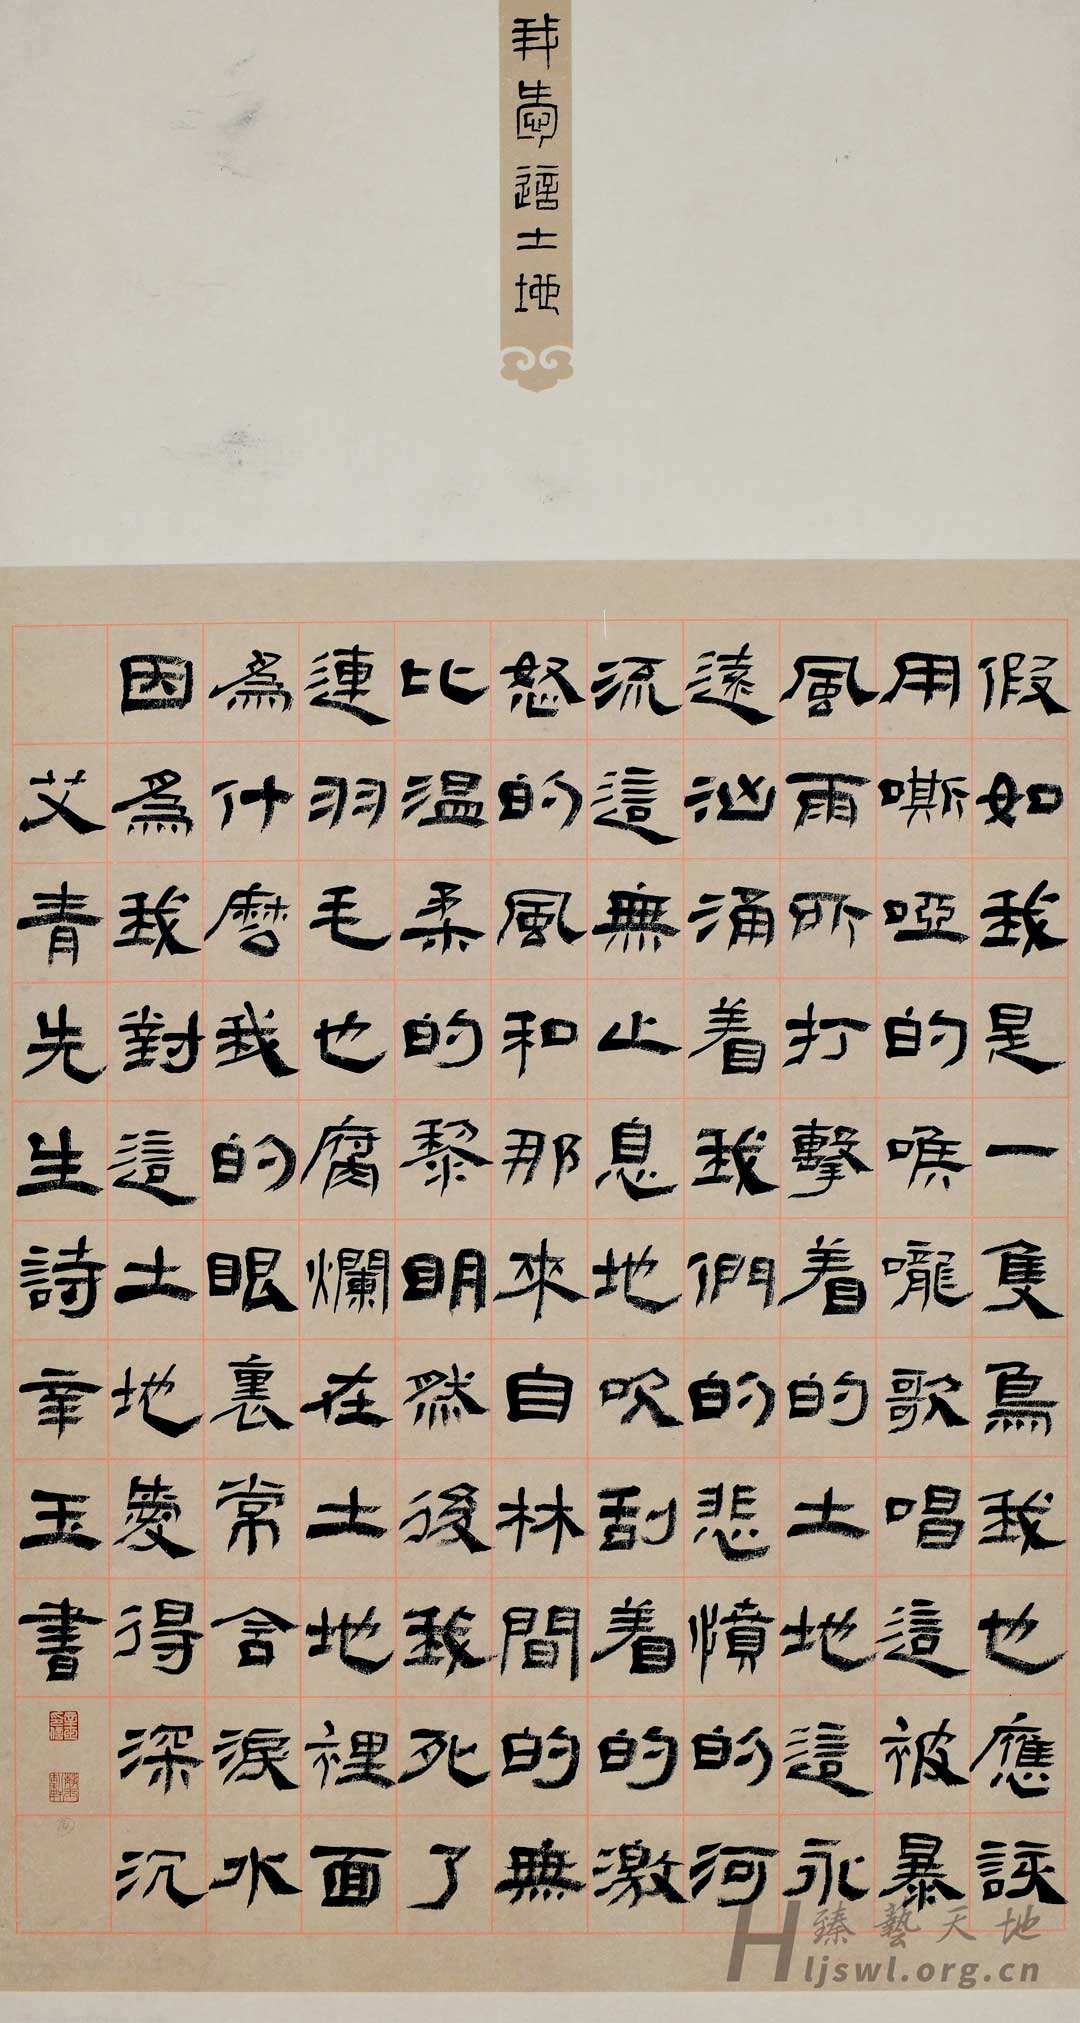 我愛這土地
假如我是一隻鳥我也應該
用嘶啞的喉嚨歌唱這被暴
風雨所打擊着的土地這永
遠汹涌着我們的悲憤的河
流這無止息地吹刮着的激
怒的風和那來自林間的無
比温柔的黎明然後我死了
連羽毛也腐爛在土地裡面
爲什麼我的眼裏常含淚水
因爲我對這土地愛得深沉
艾青先生詩玉書
臻藝天地
Hljswl.org.cn